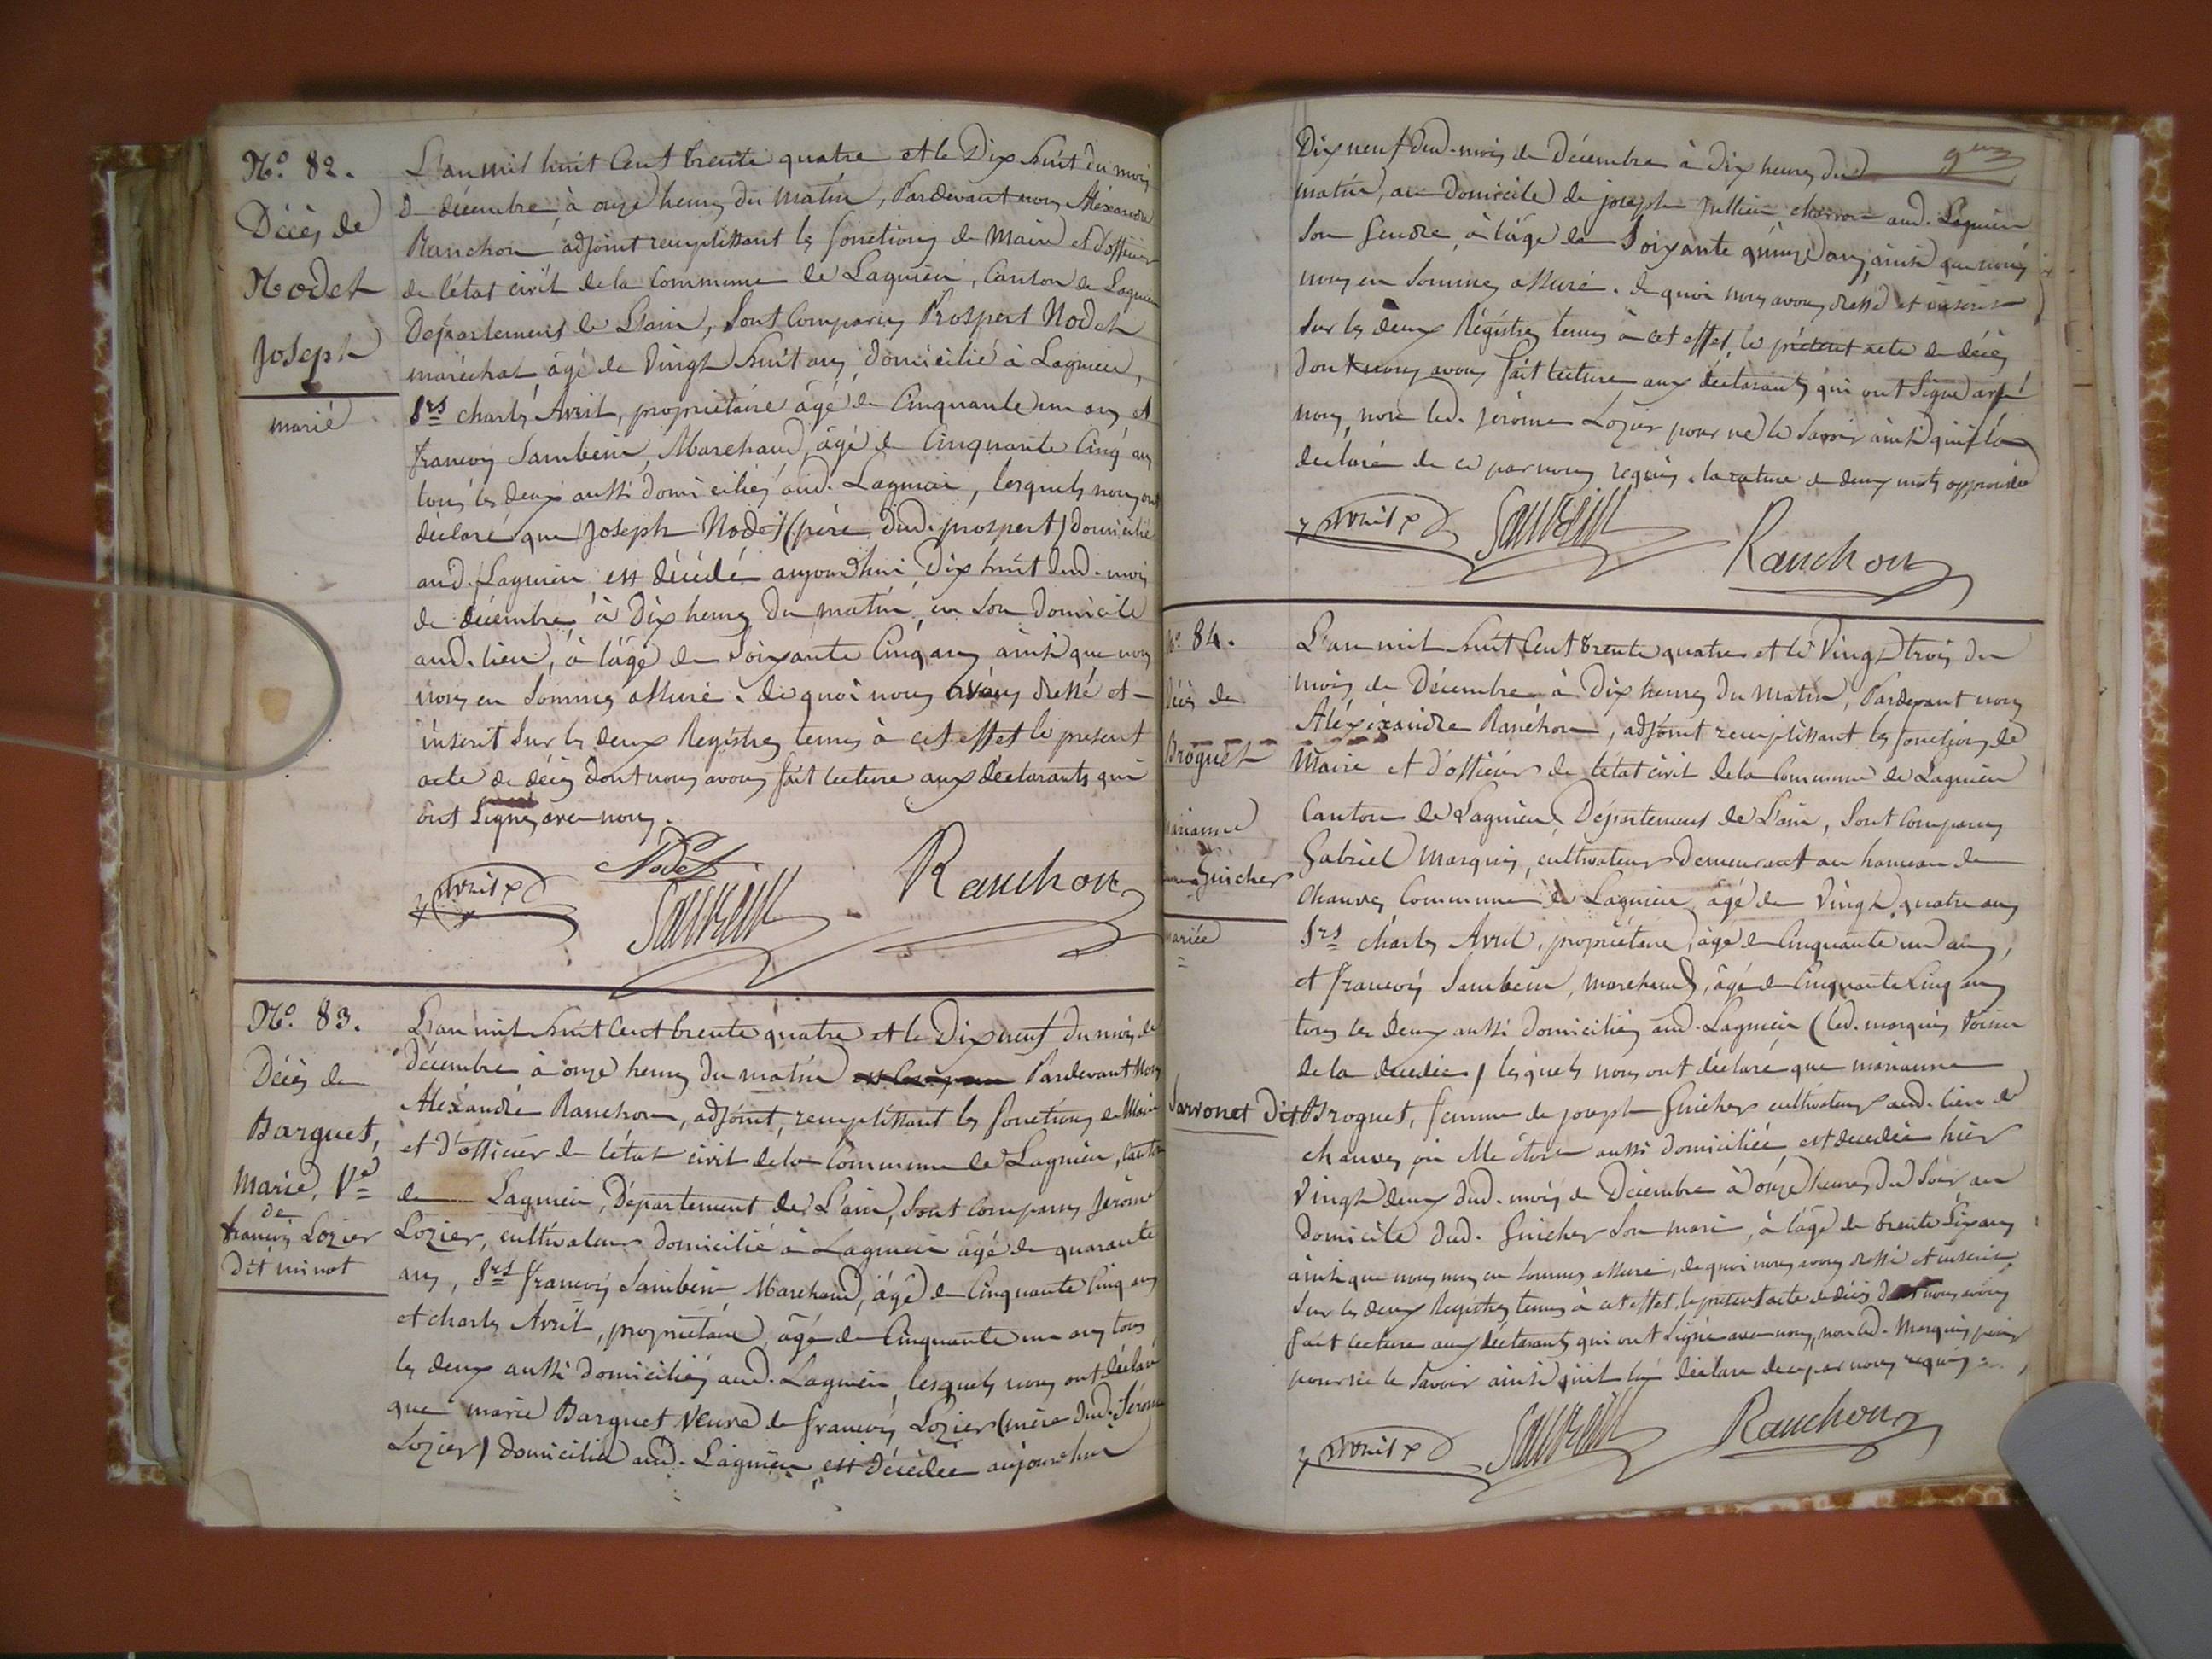 N.o 82.
Décès de
Nodet
Joseph
marié
L'an mil huit Cent trente quatre et le Dix huit du mois
de décembre, à onze heures du Matin, Pardevant nous Aléxandre
Ranchon adjoint remplissant les fonctions de Maire et d'officier
de l'état civil de la Commune de Lagnieu, Canton de Lagnieu
Département de L'ain, Sont Comparus Prospert Nodet
maréchal, âgé de Vingt huit ans, domicilié à Lagnieu,
Srs charles Avril, propriétaire âgé de Cinquante un ans, et
francois Saubein, Marchand, âgé de Cinquante Cinq ans
tous les deux aussi domiciliés aud. Lagnieu, lesquels nous ont
déclaré que Joseph Nodet (père dud. prospert) domicilié
aud. Lagnieu est décédé aujourdhui Dix huit dud. mois
de décembre à Dix heures du matin, en Son domicile
aud. lieu, à l'âge de Soixante Cinq ans ainsi que nous
nous en Sommes assuré. de quoi nous avons dressé et
inscrit Sur les deux Régistres tenus à cet effet le présent
acte de décès dont nous avons fait lecture aux déclarants qui
ont Signés avec nous.
Avril Nodet Saubein Ranchon
N.o 83.
Décès de
Barquet,
Marie, Ve
de
francois Lozier
dit minot
L'an mil huit Cent trente quatre et le Dix neuf du mois de
décembre à onze heures du matin Pardevant Nous
Aléxandre Ranchon, adjoint, remplissant les fonctions de Maire
et d'officier de l'état civil de la Commune de Lagnieu, Canton
de Lagnieu, Département de L'ain, Sont Comparus Jérôme
Lozier, cultivateur domicilié à Lagnieu âgé de quarante
ans, Srs francois Saubein Marchand, âgé de Cinquante Cinq ans
et charles Avril, propriétaire, âgé de Cinquante un ans tous
les deux aussi domiciliés aud. Lagnieu, lesquels nous ont déclaré
que marie Barquet Veuve de francois Lozier (mère dud. Jérôme
Lozier) domiciliée aud. Lagnieu est décédée aujourdhui
Dix neuf dud. mois de Décembre à Dix heures du
matin, au Domicile de joseph Jullien charron aud. Lagnieu
Son Gendre, à l'âge de Soixante quinze ans, ainsi que nous
nous en Sommes assuré. de quoi nous avons dressé et inscrit
Sur les deux Régistres tenus à cet effet, le présent acte de décès
dont nous avons fait lecture aux déclarants qui ont Signé avec
nous, non led. jérôme Lozier pour ne le Savoir ainsi qu'il l'a
déclaré de ce par nous requis. la rature de deux mots approuvée
Avril Saubein Ranchon
No. 84.
Décès de
Broquet
marianne
femme Guicher
mariée
L'an mil huit Cent trente quatre et le Vingt trois du
mois de Décembre à Dix heures du Matin, Pardevant nous
Aléxixandre Ranchon, adjoint remplissant les fonctions de
Maire et d'officier de l'état civil de la Commune de Lagnieu
Canton de Lagnieu, Département de L'ain, Sont Comparus
Gabriel Marquis, cultivateur Demeurant au hameau de
chauves Commune de Lagnieu, âgé de Vingt quatre ans
Srs charles Avril, propriétaire, âgé de Cinquante un ans,
et francois Saubein, marchand, âgé de Cinquante Cinq ans
tous les deux aussi domiciliés aud. Lagnieu (led. marquis Voisin
de la décédée) lesquels nous ont déclaré que marianne
Sarvonet dit Broquet, femme de joseph Guicher cultivateur aud. lieu de
chauves, où elle étoit aussi domiciliée, est décédée hier
Vingt deux dud. mois de Décembre à onze heures du Soir au
domicile dud. Guicher Son mari, à l'âge de trente Six ans
ainsi que nous nous en Sommes assuré, de quoi nous avons dressé et inscrit
Sur les deux Régistres tenus à cet effet, le présent acte de décès dont nous avons
fait lecture aux déclarants qui ont Signé avec nous, non led. Marquis
pour ne le Savoir ainsi qu'il l'a déclaré de ce par nous requis.
Avril Saubein Ranchon